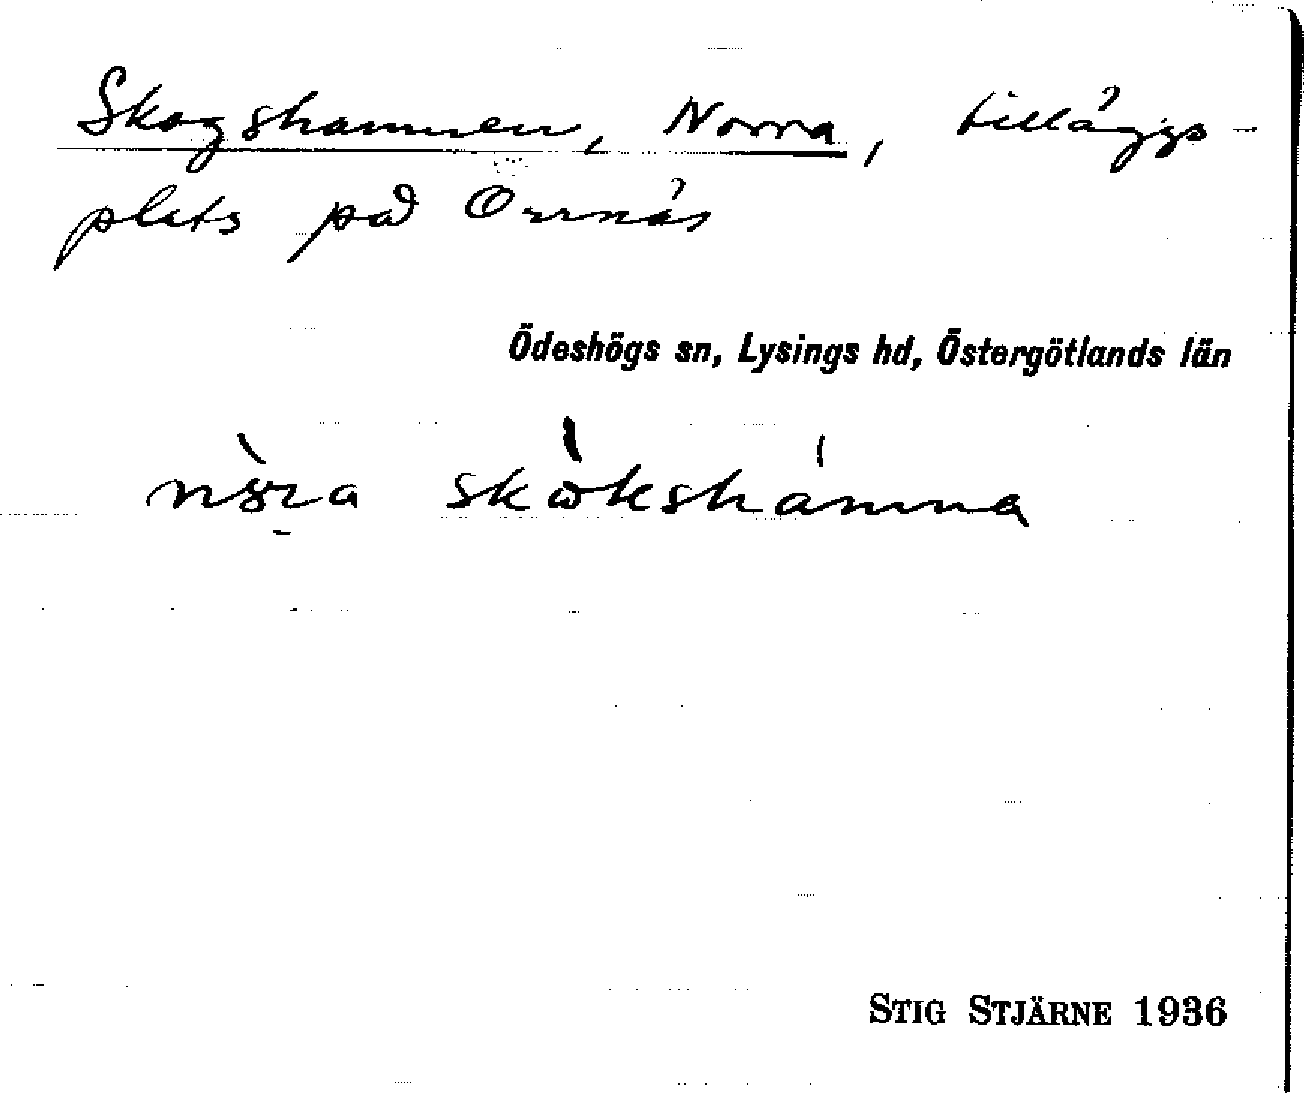 Skogshamnen, Norra, tilläggs-
plats på Orrnäs
Ödeshögs sn, Lysings hd, Östergötlands län
skòkshámna
STIG STJÄRNE 1936